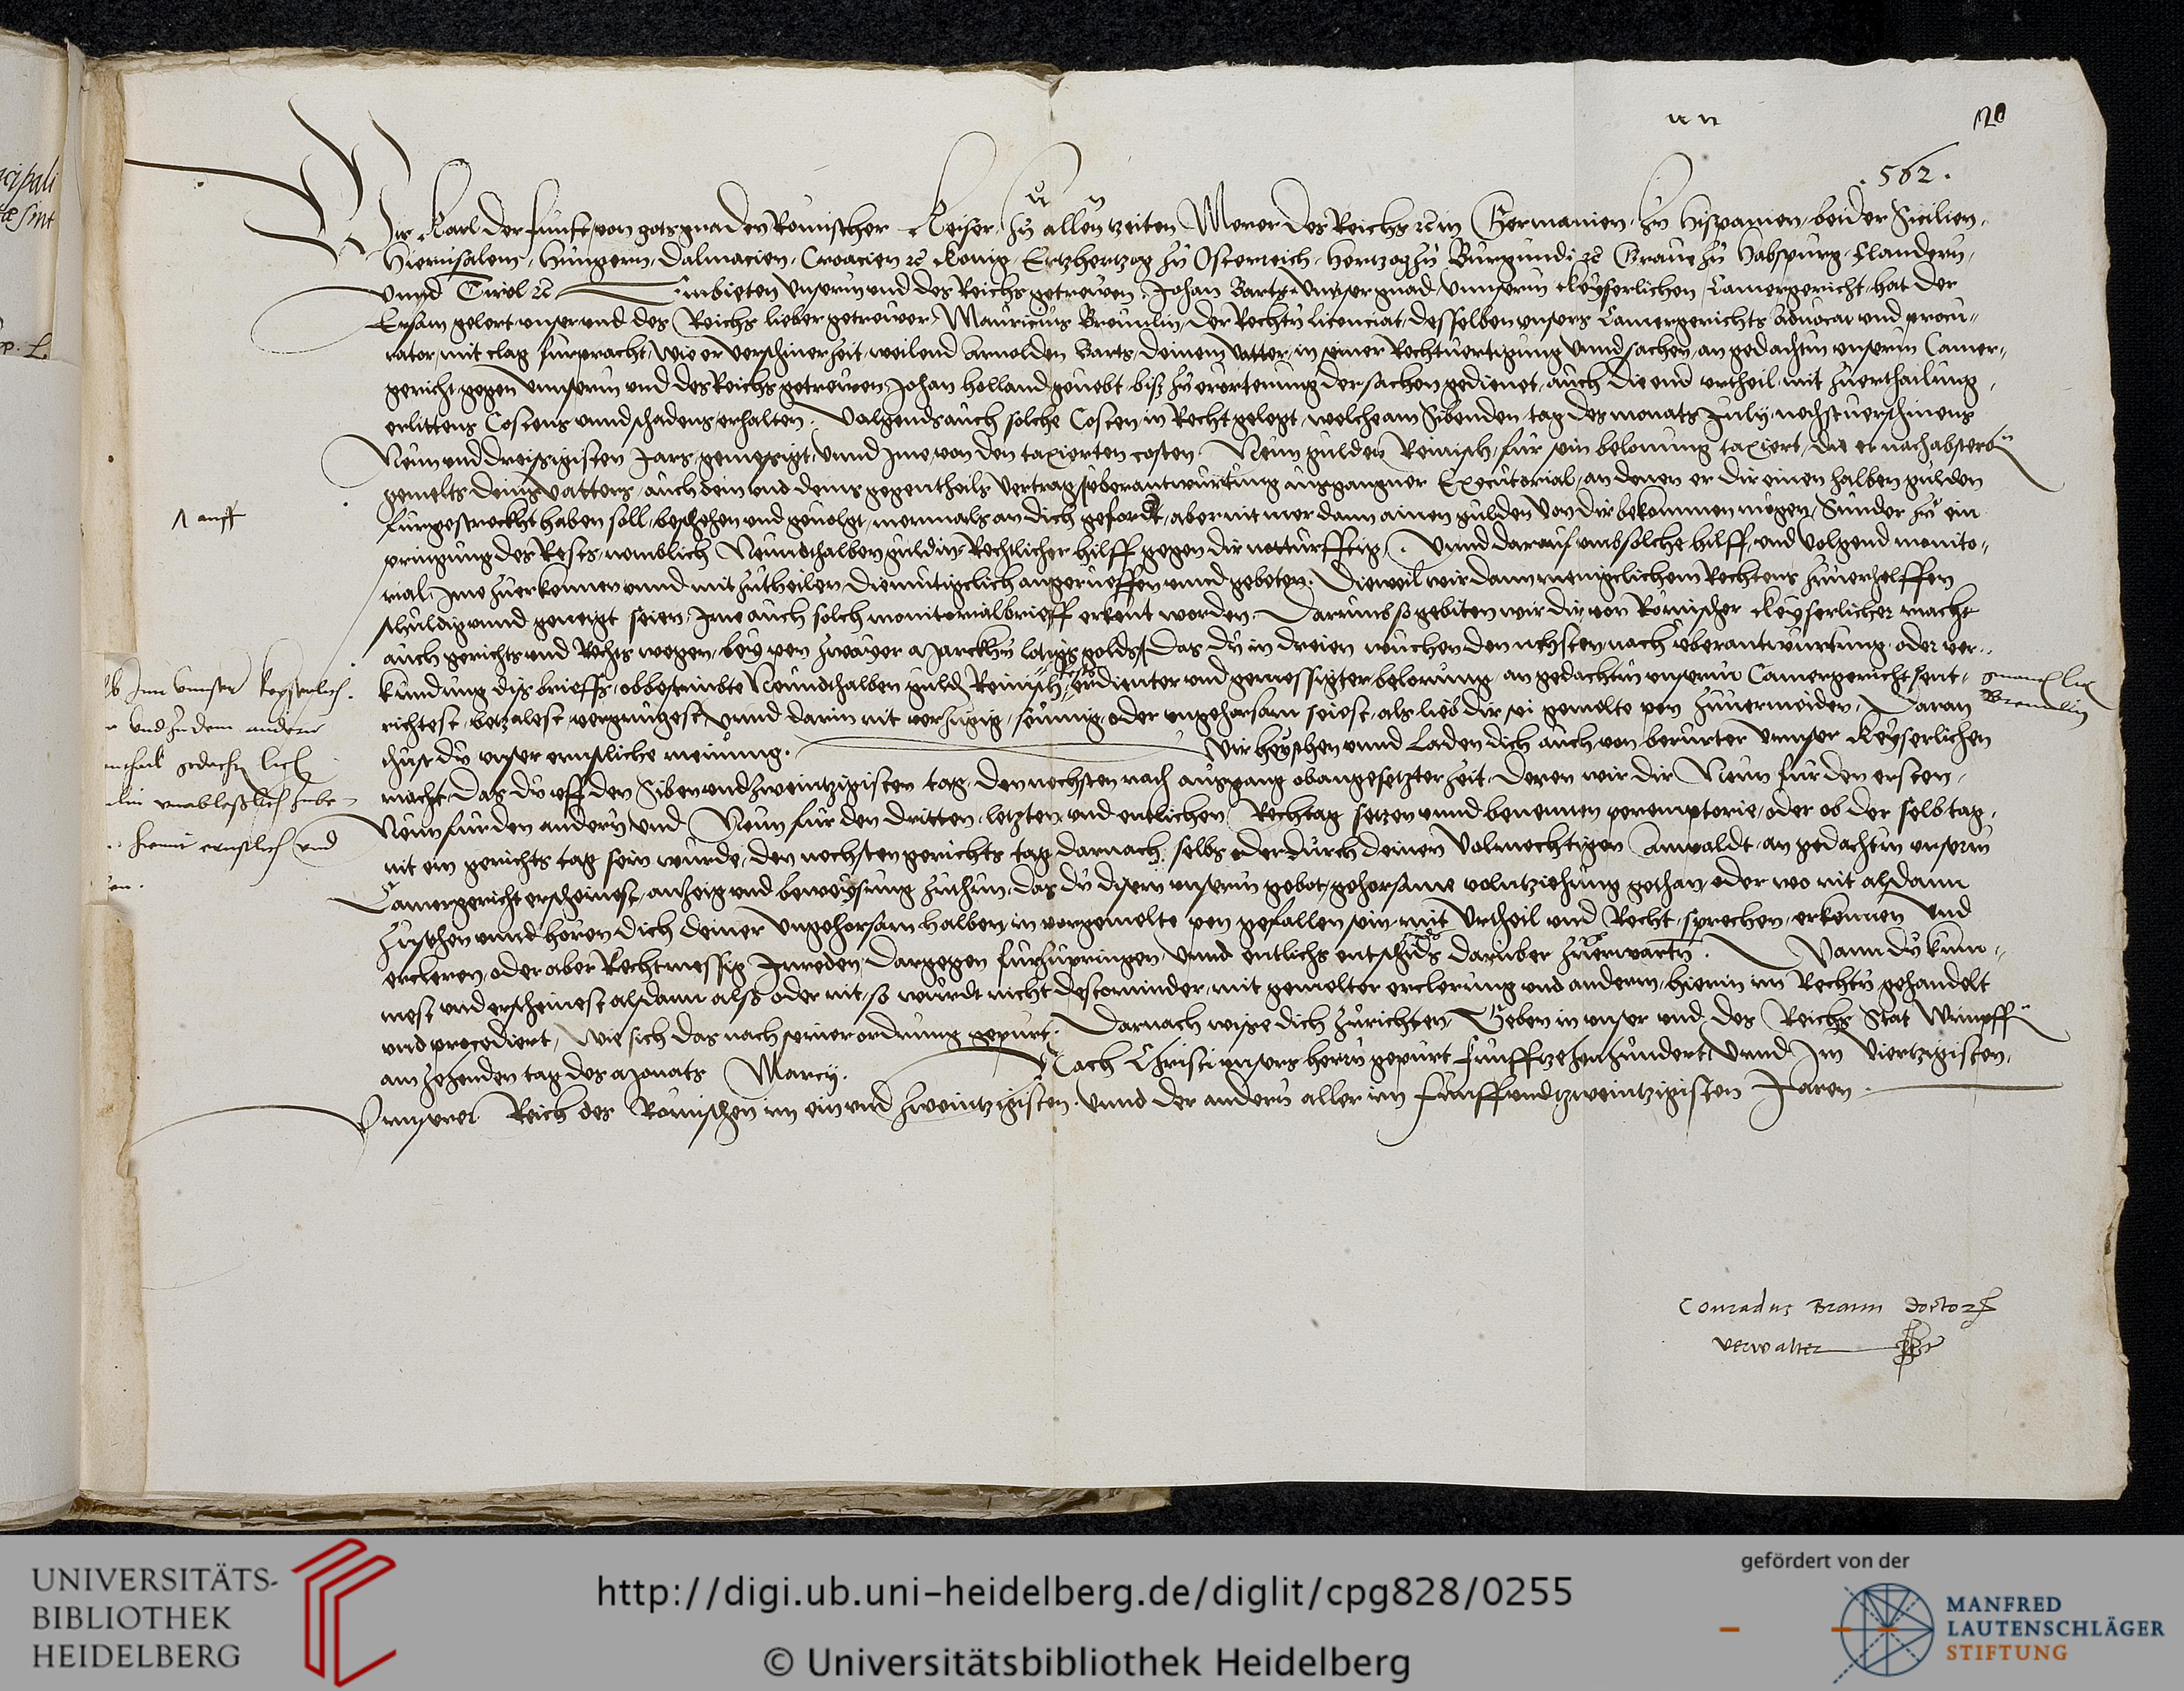 an 120
.562.
Wir Karl der funfft von gots gnaden Romischer Keiser, zu allen tzeiten Merer des Reichs ꝛc in Germanien, zu Hispanien, beider Sicilien,
Hierusalem, Hungern, Dalmacien, Croacien ꝛc Konig, Ertzhertzog zu Osterreich, Hertzog zu Burgundi ꝛc Graue zu Habspurg, Flandern,
vnnd Tirol ꝛc Embieten vnserm vnd des Reichs getrewen, Johan Barts vnnser gnad, vnnserm Keyserlichen Camergericht, hat der
Ersam gelert vnser vnd des Reichs lieber getrewer, Mauricius Breunlin, der Rechten licenciat, desselben vnsers Camergerichts aduocat vnd procu-
rator, mit clag furpracht, wie er verschiner zeit, weilend Arnolden Barts, deinem vatter, in seiner Rechtuertigung vnnd sachen, an gedachtem vnserm Camer-
gericht, gegen vnnserm vnd des Reichs getrewen, Johan Holland, geuebt, biß zu erorterung der sachen gedienet, auch die end vrtheil, mit zuerthailung,
erlittens Costens vnnd schadens, erhalten. Volgends auch solche Costen in Recht gelegt, welche am Sibenden tag des monats July, nechstuerschinens
Neun vnd dreissigisten Jars, gemessigt, vnnd Ime, von den taxierten costen Neun gulden Reinisch, fur sein belonung taxiert, die er nach absterben
gemelts deins vatters, auch dein vnd deins gegentheils vertrag, vberantwurtung ausgangner Executorial, an denen er dir einen halben gulden
furgestreckht haben soll, beschehen vnd geuolgt, mermals an dich gefordert, aber nit mer dann ainen gulden von dir bekommen mogen, Sunder zu ein
Λ auff
pringung des Rests, nemblich Neundthalben guldin, Rechtlicher hilff gegen dir notturfftig. Vnnd darauf vmb solche hilff, vnd volgend monito-
rial, Ime zuerkennen vnnd mit zutheilen, diemutigclich angerueffen vnnd gebeten. Dieweil wir dann menigclichem Rechtens zuuerhelffen
schuldig vnnd geneigt seien, Ime auch solch monitorialbrieff erkent worden. Darumb so gebieten wir dir, von Romischer Keyserlicher macht
auch gerichts vnd Rechts wegen, bey pen zwayer Marckh lotigs golds, das du in dreien wuchen den nehsten, nach vberantwurtung, oder ver-
kundung diß brieffs, obbestimbte Neundthalben guld Reinisch, verdienter vnd gemessigter belonung, an gedachtem vnserm Camergericht, ent-
Breunlin
richtest, betzalest, vergnugest, vnnd darin nit verzugig, seumig, oder vngehorsam seiest, als lieb dir sei gemelte pen zuuermeiden, Daran
thust du vnser ernstliche meinung. Wir heyschen vnnd laden dich auch, von berurter vnnser Keyserlichen
macht, das du vff den Siben vnd zweintzigisten tag, den nechsten nach ausgang obangesetzter zeit, deren wir dir Neun fur den ersten,
Neun fur den andern, vnd Neun fur den dritten, letzten, vnd entlichen Rechtag setzen vnnd benennen peremptorie, oder ob der selb tag,
nit ein gerichts tag sein wurde, den nechsten gerichts tag darnach, selbs oder durch deinen volmechtigen Anwaldt, an gedachtem vnserm
Camergericht erscheinest, anzeig vnd beweysung zuthun, das du disem vnserm gebot, gehorsame volntziehung gethan, oder wo nit alsdann
zusehen vnnd horen, dich deiner vngehorsam halben, in vorgemelte pen gefallen sein, mit vrtheil vnd Recht, sprechen, erkennen vnd
ercleren, oder aber Rechtmessig Inreden, dargegen furzupringen, vnnd entlichs entschids daruber zuerwarten. Wann du kum-
mest vnd erscheinest alsdann also oder nit, so wurdt nicht destominder, mit gemelter erclerung vnd anderm, hierin im Rechten gehandelt
vnd procediert, wie sich das nach seiner ordnung gepurt. Darnach wisse dich zurichten, Geben in vnser vnd des Reichs Stat Wimpffen
am zehenden tag des Monats Marcij. Nach Christi vnsers herrn gepurt funfftzehenhundert, vnnd Im viertzigisten,
Vnnserer Reich des Romischen im ein vnd zweintzigisten, vnnd der andern aller im funff vnd tzweintzigisten Jaren.
Inn vnnser keyserlich.
vnd zu dem andern
gedacht lic
vnableßlich
hiemit ernstlich vnd
Conradus Braun doctor
verwalter
UNIVERSITÄTS-
BIBLIOTHEK
HEIDELBERG
http://digi.ub.uni-heidelberg.de/diglit/cpg828/0255
© Universitätsbibliothek Heidelberg
gefördert von der
MANFRED
LAUTENSCHLÄGER
STIFTUNG